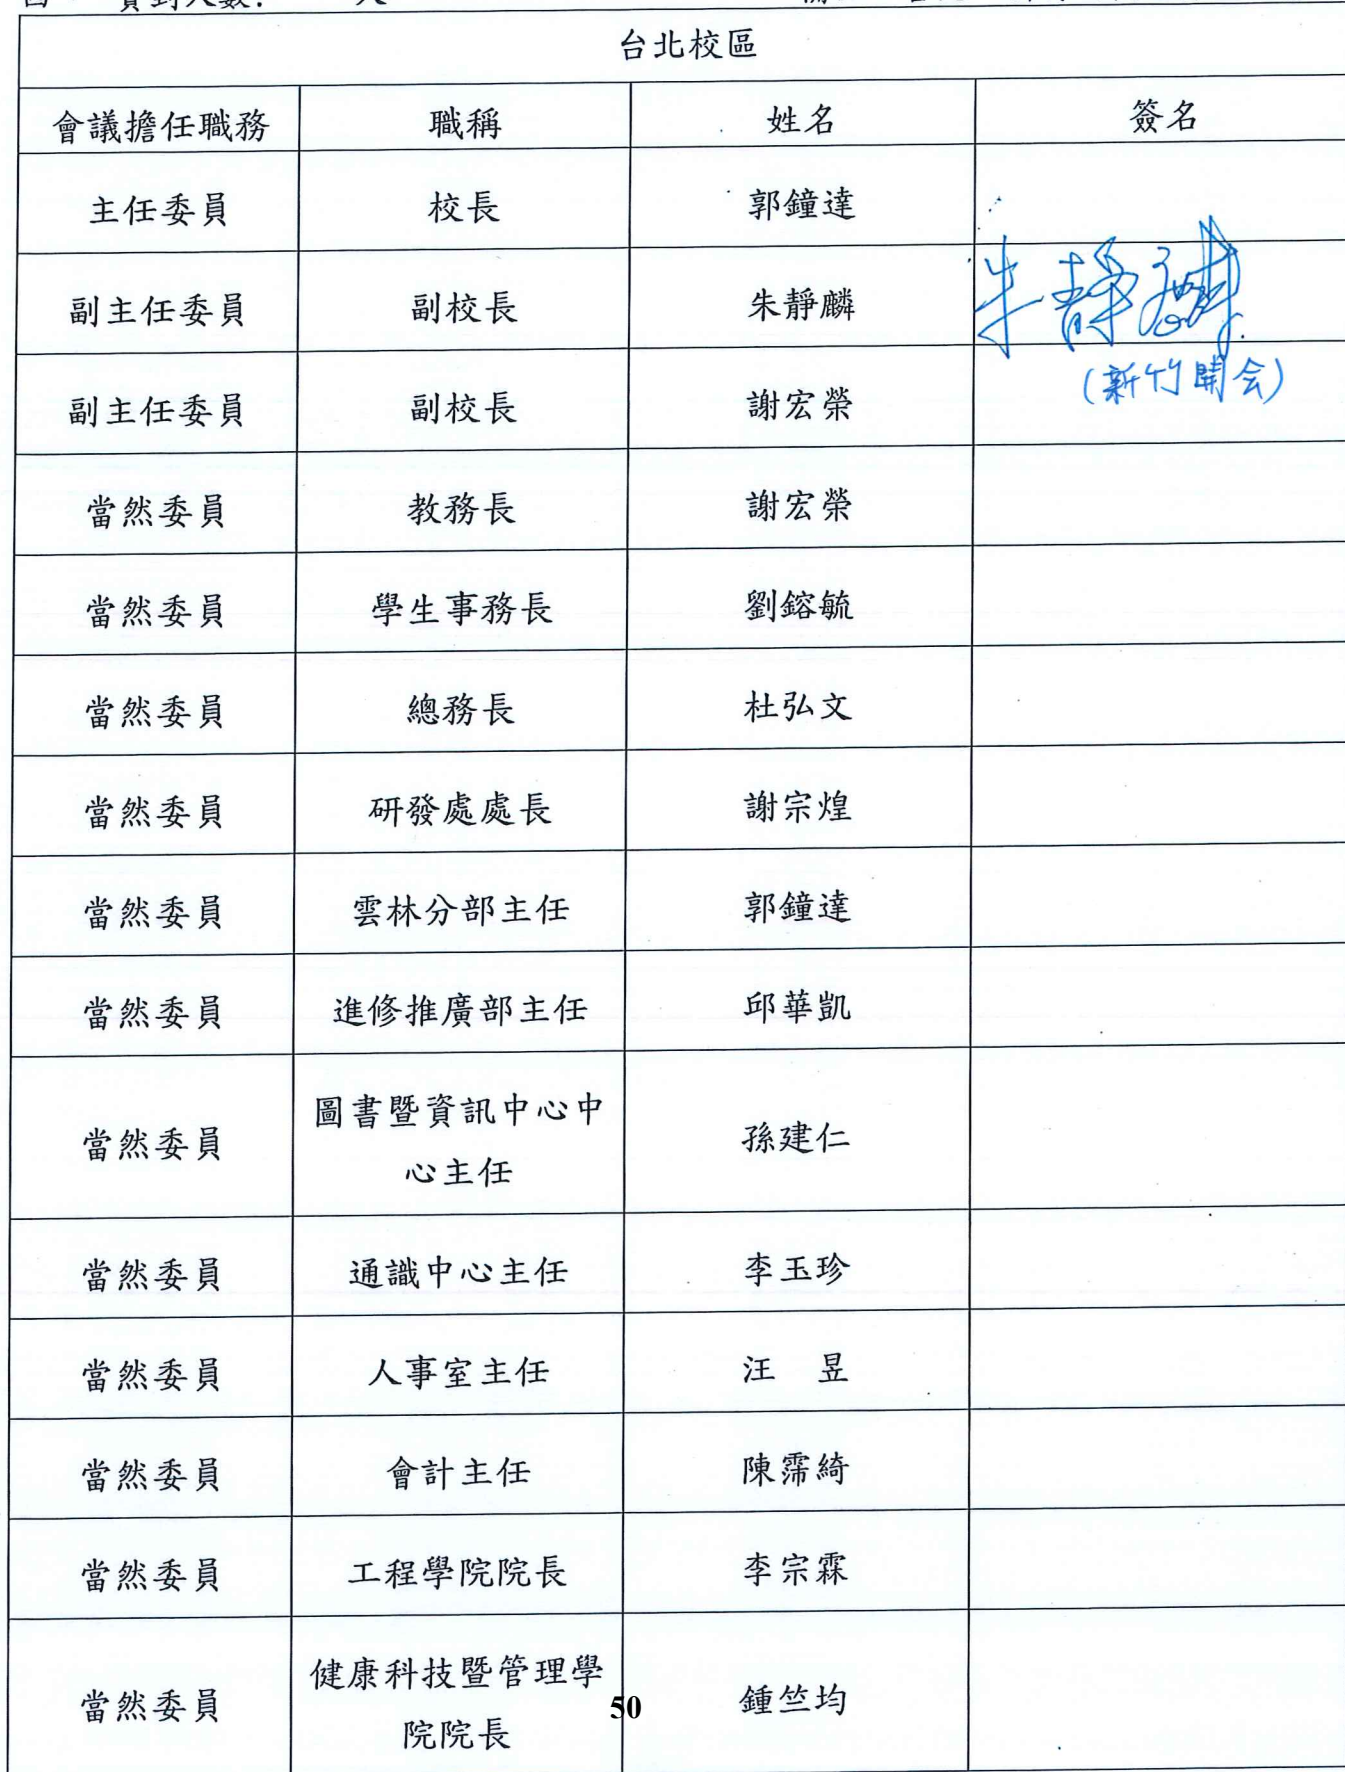 實到人數: 人
台北校區
會議擔任職務 職稱 姓名 簽名
主任委員 校長 郭鐘達
副主任委員 副校長 朱靜麟 朱靜麟
副主任委員 副校長 謝宏榮 (新竹開会)
當然委員 教務長 謝宏榮
當然委員 學生事務長 劉鎔毓
當然委員 總務長 杜弘文
當然委員 研發處處長 謝宗煌
當然委員 雲林分部主任 郭鐘達
當然委員 進修推廣部主任 邱華凱
圖書暨資訊中心中
當然委員 孫建仁
心主任
當然委員 通識中心主任 李玉珍
當然委員 人事室主任 汪 昱
當然委員 會計主任 陳霈綺
當然委員 工程學院院長 李宗霖
健康科技暨管理學
當然委員 鍾竺均
院院長
50